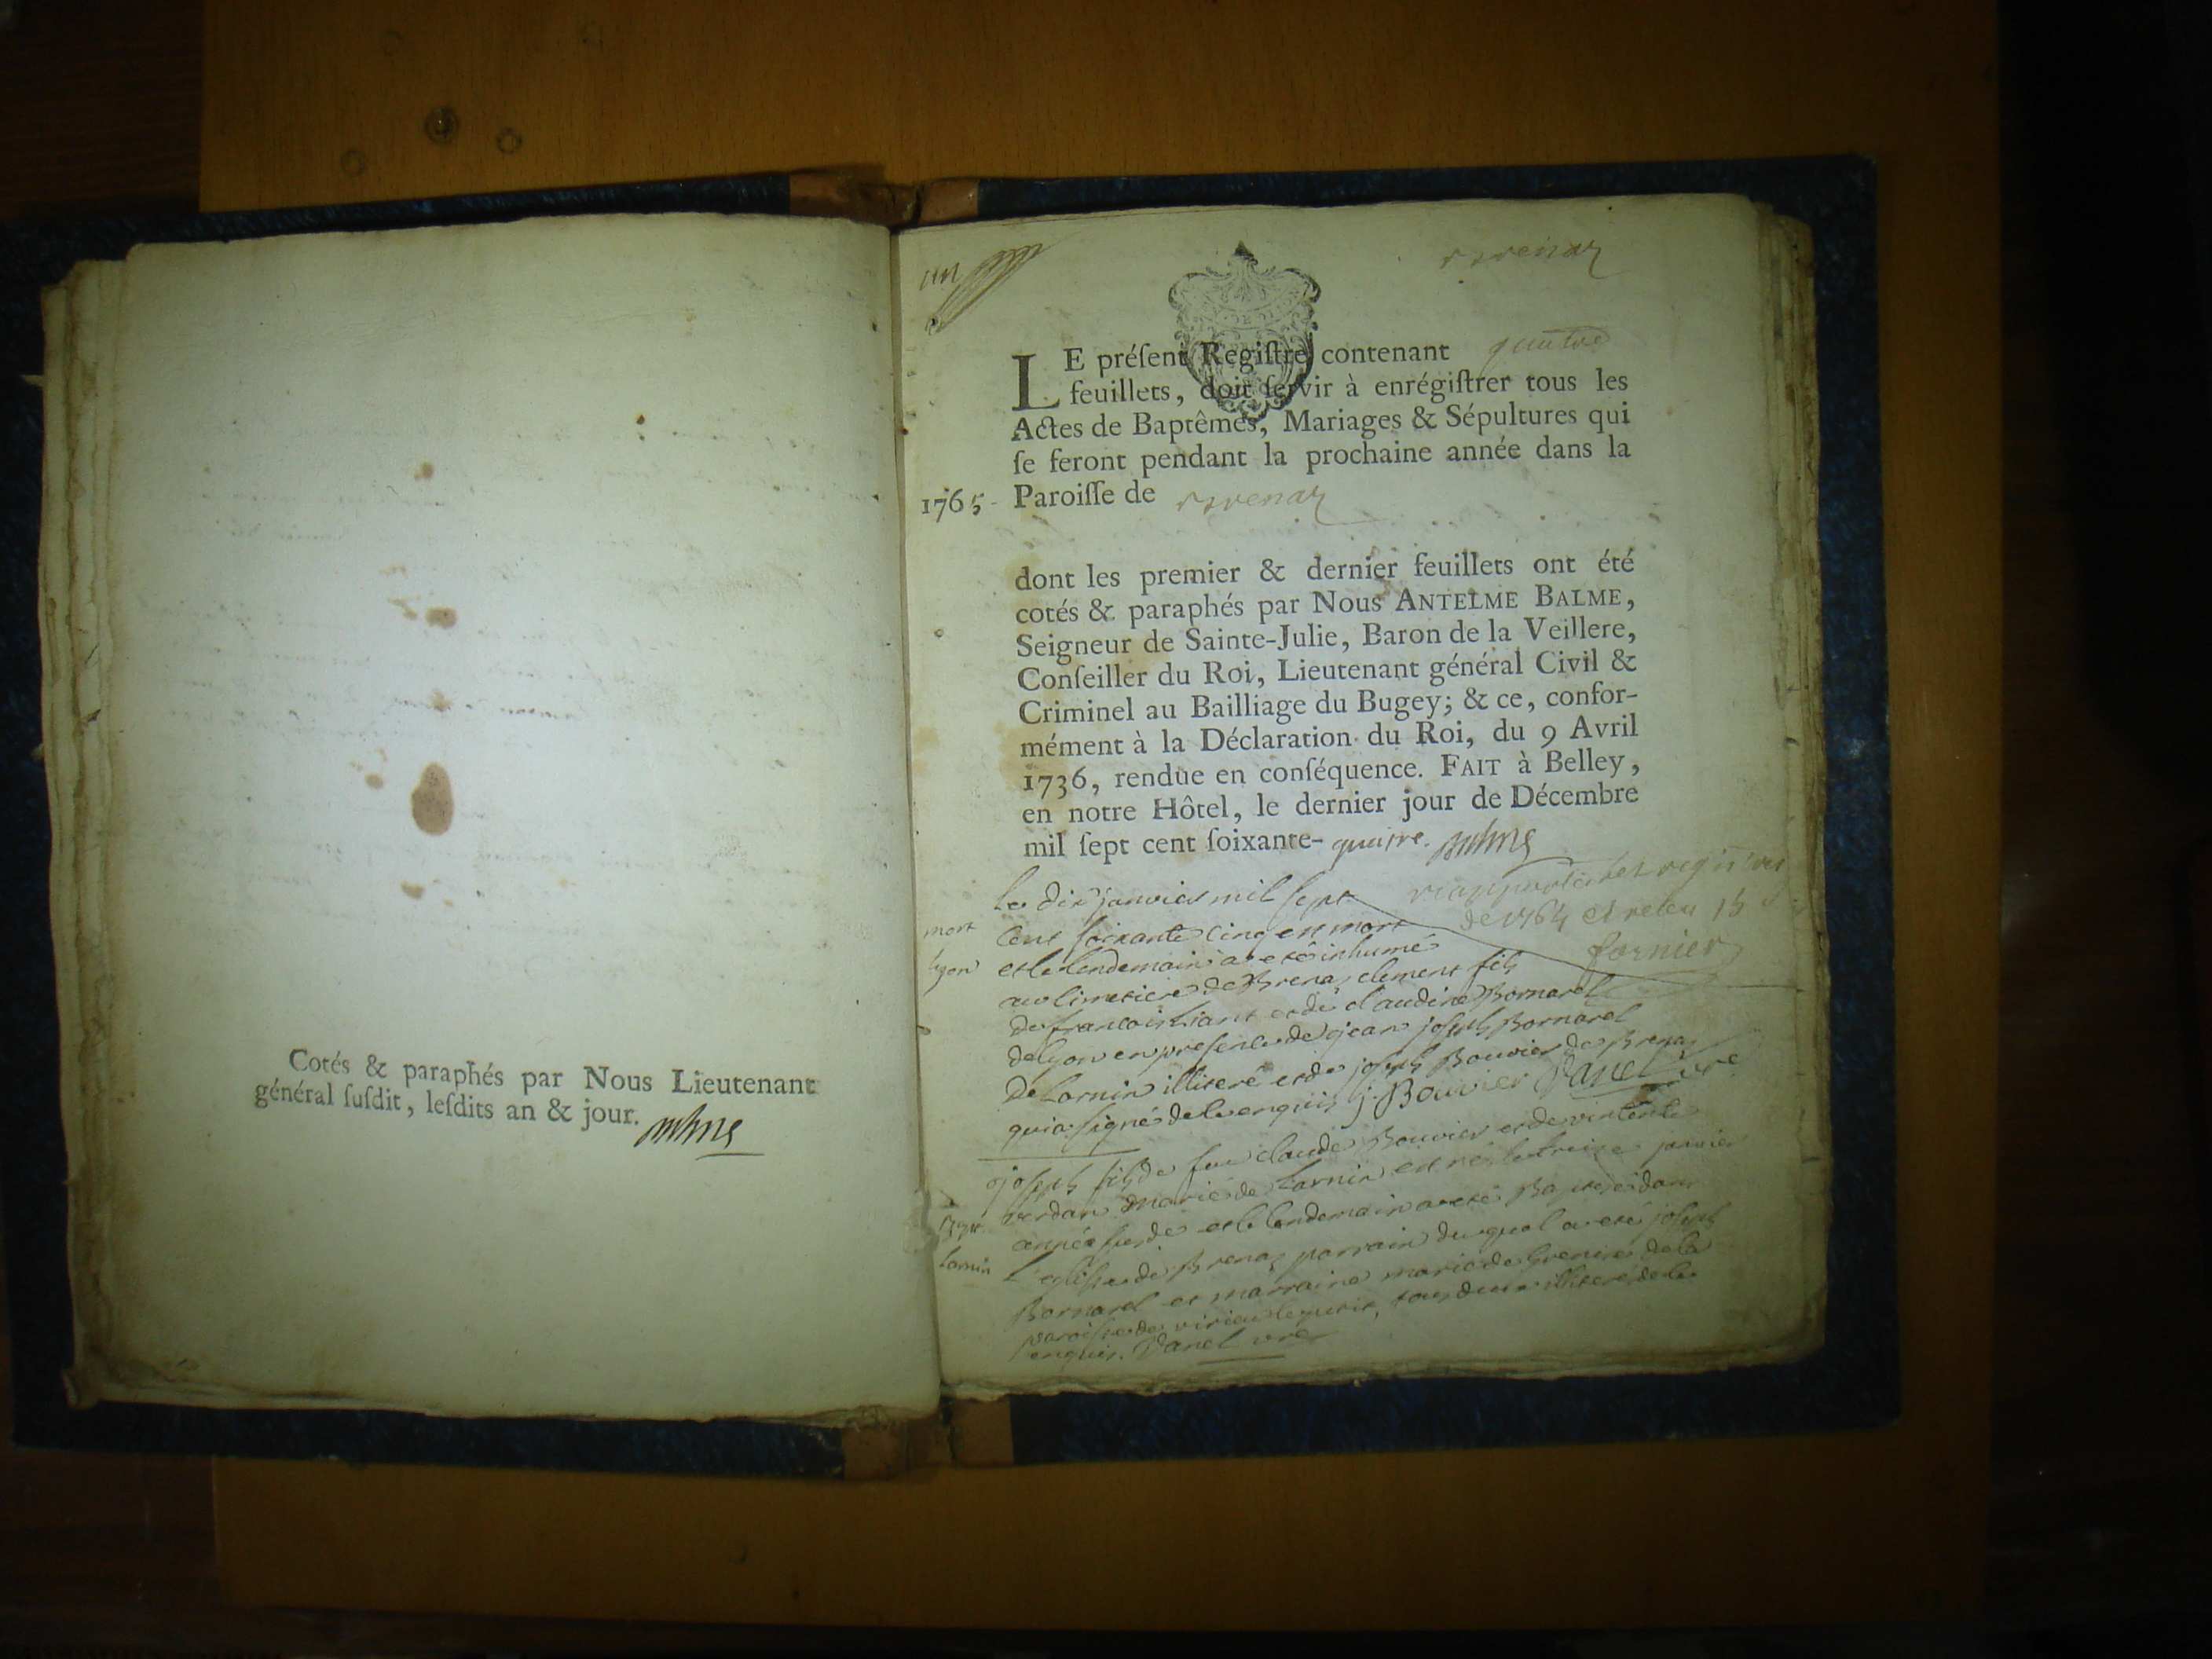 Cotés & paraphés par Nous Lieutenant
général ſuſdit, leſdits an & jour.
un
LE préſent Regiſtre contenant quatre
feuillets, doit ſervir à enrégiſtrer tous les
Actes de Baptêmes, Mariages & Sépultures qui
ſe feront pendant la prochaine année dans la
1765 Paroiſſe de
dont les premier & dernier feuillets ont été
cotés & paraphés par Nous ANTELME BALME,
Seigneur de Sainte-Julie, Baron de la Veillere,
Conſeiller du Roi, Lieutenant général Civil &
Criminel au Bailliage du Bugey; & ce, confor-
mément à la Déclaration du Roi, du 9 Avril
1736, rendue en conſéquence. FAIT à Belley,
en notre Hôtel, le dernier jour de Décembre
mil ſept cent ſoixante-quatre.
de 1764 et retenu 15
fornier
le dix janvier mil ſept
mort cent ſoixante cinq est mort
lyon et le lendemain a eté inhumé
au cimetiere de Brenaz clement fils
de francois et de claudine Bornarel
de lyon en preſence de jean joſeph Bornarel
de Lornin illiteré et de joſeph Bouvier de Brenaz
qui a ſigné de ce enquis j. Bouvier Vanel vre
joſeph fils de feu claude Bouvier et de
verdan mariés de Lornin est né le treize janvier
Bapt. année ſusde et le lendemain a eté Baptisé dans
Lornin L'egliſe de Brenaz parrain duquel a eté joſeph
Bornarel et marraine marie de la
paroiſſe de virieu le petit, tous deux illiterés de ce
enquis. Vanel vre